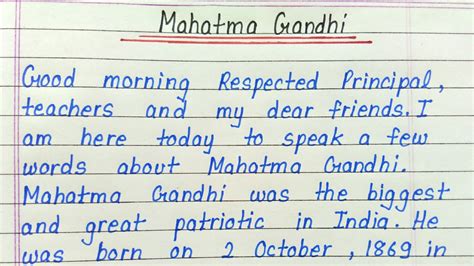 Mahatma Gandhi
Good morning Respected Principal,
teachers and my dear friends. I
am here today to speak a few
words about Mahatma Gandhi.
Mahatma Gandhi was the biggest
and great patriotic in India. He
was born on 2 October, 1869 in